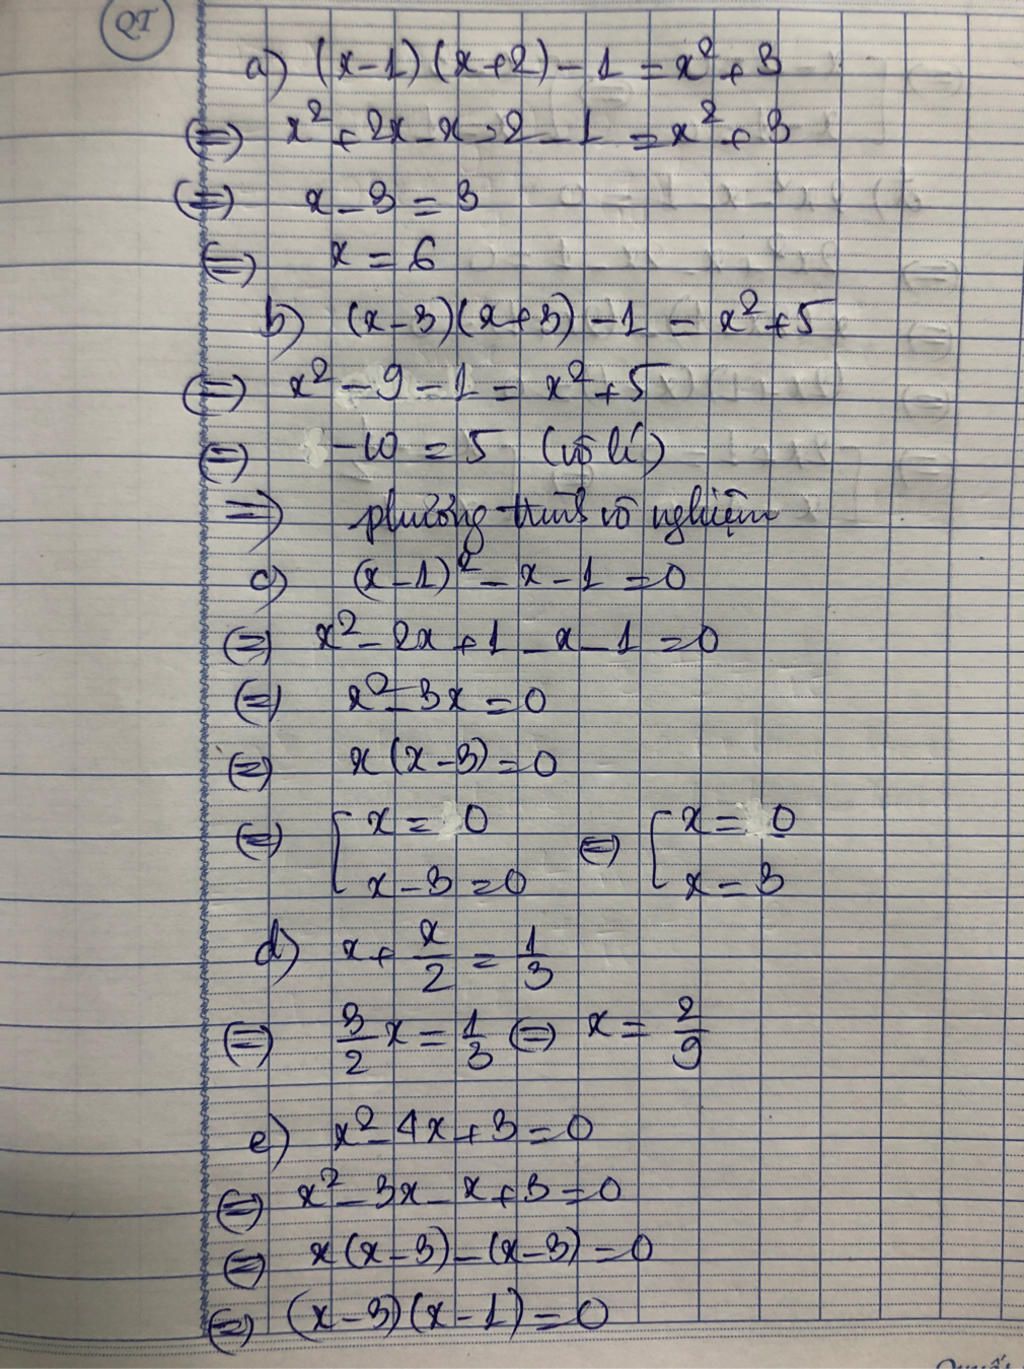 QT
a) (x-1)(x+2)-1=x²+3
(=) x²+2x-x-2-1=x²+3
(=) x-3=3
(=) x=6
b) (x-3)(x+3)-1=x²+5
(=) x²-9-1=x²+5
(=) -10=5 (vô lí)
=) phương trình vô nghiệm
c) (x-1)²-x-1=0
(=) x²-2x+1-x-1=0
(=) x²-3x=0
(=) x(x-3)=0
(=) [ x=0 (=) [ x=0
x-3=0 x=3
d) x+x/2=1/3
(=) 3/2x=1/3 (=) x=2/9
e) x²-4x+3=0
(=) x²-3x-x+3=0
(=) x(x-3)-(x-3)=0
(=) (x-3)(x-1)=0